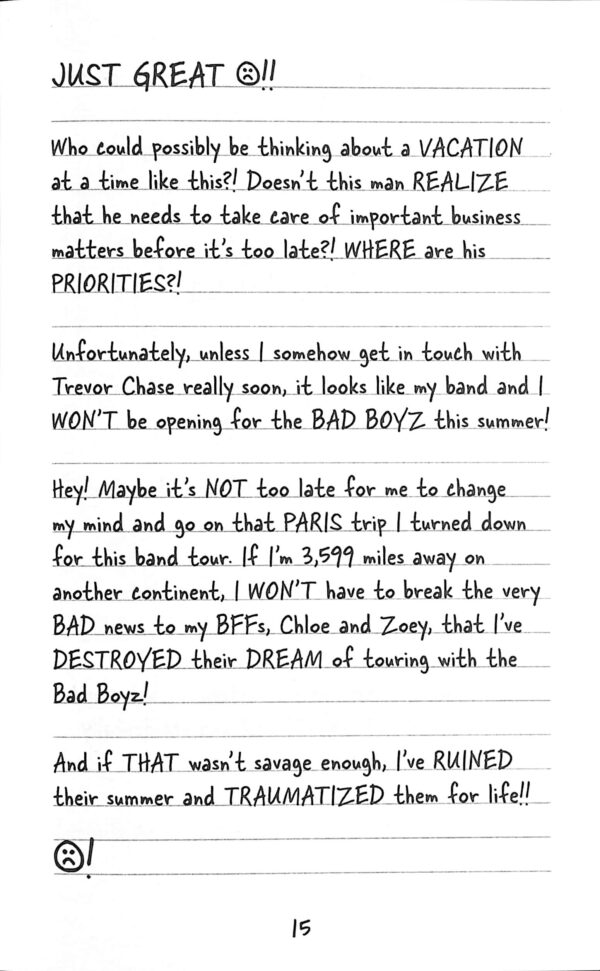 JUST GREAT ☹!!
Who could possibly be thinking about a VACATION
at a time like this?! Doesn't this man REALIZE
that he needs to take care of important business
matters before it's too late?! WHERE are his
PRIORITIES?!
Unfortunately, unless I somehow get in touch with
Trevor Chase really soon, it looks like my band and I
WON'T be opening for the BAD BOYZ this summer!
Hey! Maybe it's NOT too late for me to change
my mind and go on that PARIS trip I turned down
for this band tour. If I'm 3,599 miles away on
another continent, I WON'T have to break the very
BAD news to my BFFs, Chloe and Zoey, that I've
DESTROYED their DREAM of touring with the
Bad Boyz!
And if THAT wasn't savage enough, I've RUINED
their summer and TRAUMATIZED them for life!!
☹!
15